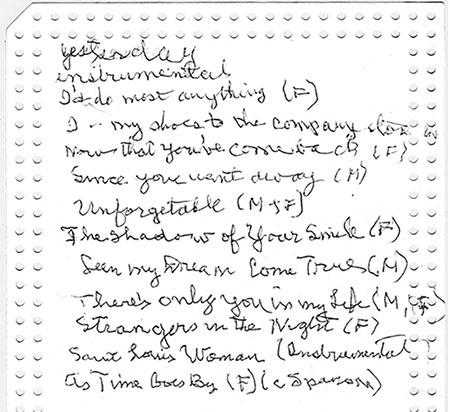 yesterday
instrumental
I'd do most anything (F)
I -- my shoes to the company store
Now that you've come back (F)
Since you want away (M)
Unforgetable (M + F)
The Shadow of Your Smile (F)
Seen my Dream Come True (M)
There's only you in my Life (M,
Strangers in the Night (F)
Saint Louis Woman (Instrumental)
As Time Goes By (F) (